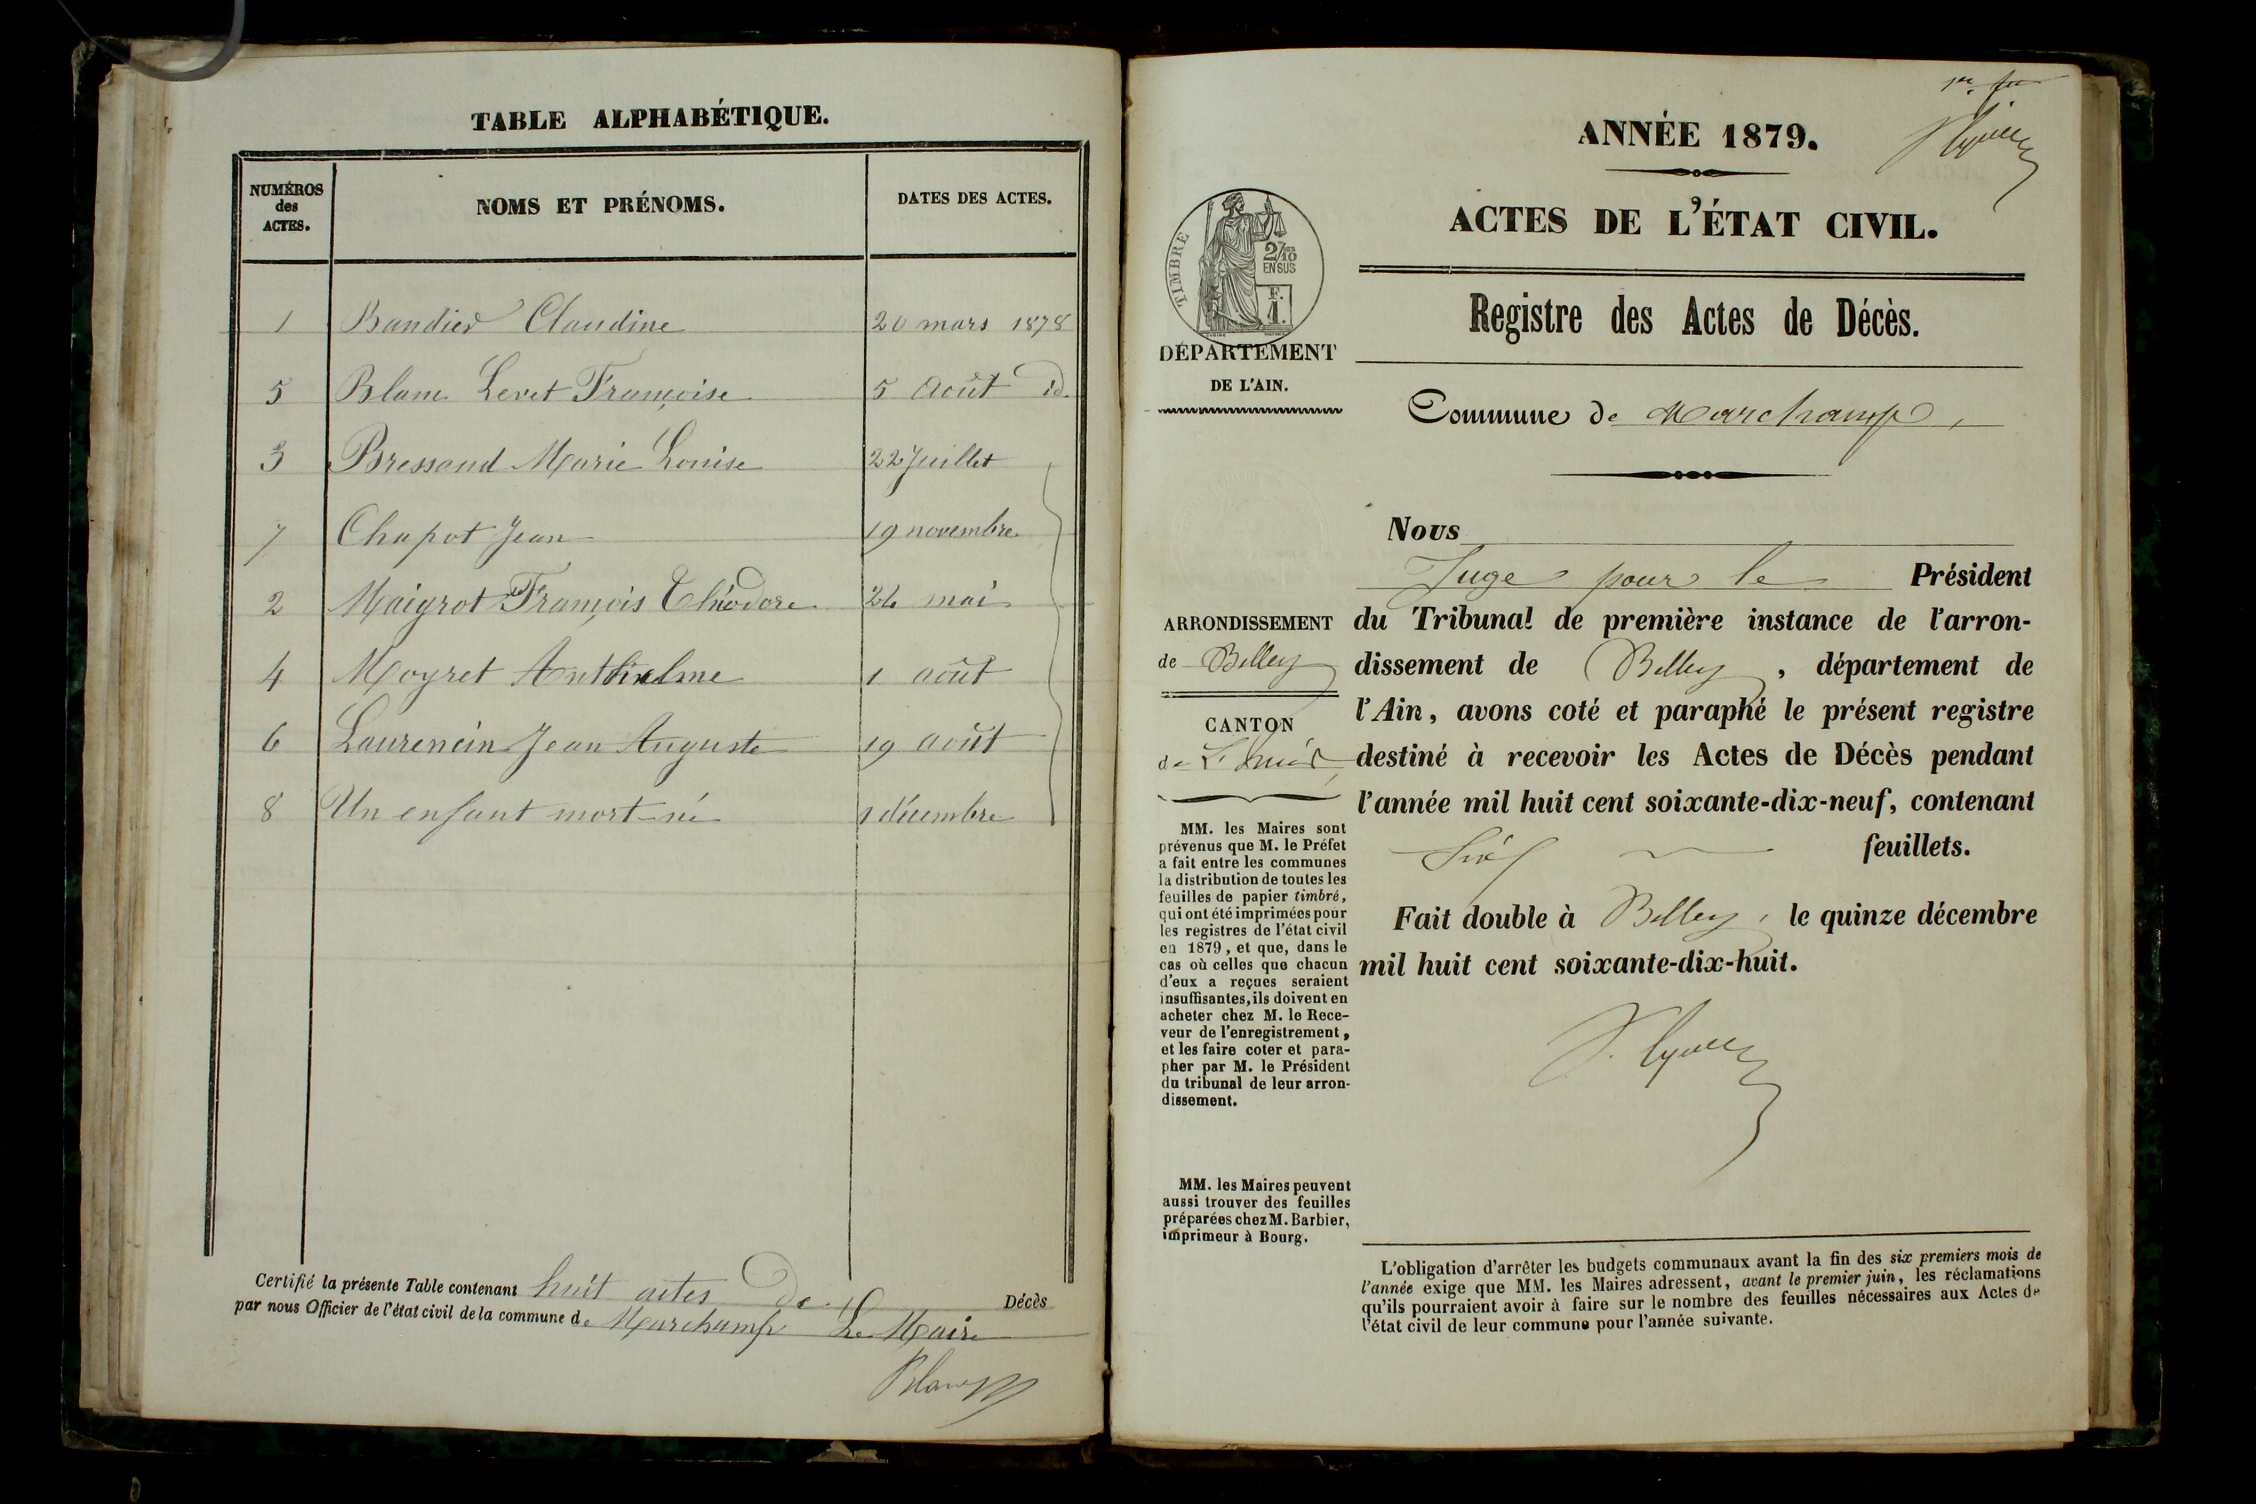 TABLE ALPHABÉTIQUE.
NUMÉROS des ACTES.
NOMS ET PRÉNOMS.
DATES DES ACTES.
1 Bandier Claudine 20 mars 1878
5 Blanc Levet Françoise 5 Août id.
3 Bressand Marie Louise 22 Juillet
7 Chapot Jean 19 novembre
2 Maigrot François Théodore 24 mai
4 Moyret Anthelme 1 août
6 Laurencin Jean Auguste 19 août
8 Un enfant mort-né 1 décembre
Certifié la présente Table contenant huit actes de Décès
par nous Officier de l'état civil de la commune de Marchamp Le Maire
Blanc
ANNÉE 1879.
ACTES DE L'ÉTAT CIVIL.
TIMBRE
2/10
EN SUS
F.
1.
DÉPARTEMENT
DE L'AIN.
Registre des Actes de Décès.
Commune de Marchamp,
Nous
Juge pour le Président
du Tribunal de première instance de l'arron-
dissement de Belley, département de
l'Ain, avons coté et paraphé le présent registre
destiné à recevoir les Actes de Décès pendant
l'année mil huit cent soixante-dix-neuf, contenant
Six feuillets.
Fait double à Belley, le quinze décembre
mil huit cent soixante-dix-huit.
ARRONDISSEMENT
de Belley
CANTON
de
MM. les Maires sont
prévenus que M. le Préfet
a fait entre les communes
la distribution de toutes les
feuilles de papier timbré,
qui ont été imprimées pour
les registres de l'état civil
en 1879, et que, dans le
cas où celles que chacun
d'eux a reçues seraient
insuffisantes, ils doivent en
acheter chez M. le Rece-
veur de l'enregistrement,
et les faire coter et para-
pher par M. le Président
du tribunal de leur arron-
dissement.
MM. les Maires peuvent
aussi trouver des feuilles
préparées chez M. Barbier,
imprimeur à Bourg.
L'obligation d'arrêter les budgets communaux avant la fin des six premiers mois de
l'année exige que MM. les Maires adressent, avant le premier juin, les réclamations
qu'ils pourraient avoir à faire sur le nombre des feuilles nécessaires aux Actes de
l'état civil de leur commune pour l'année suivante.